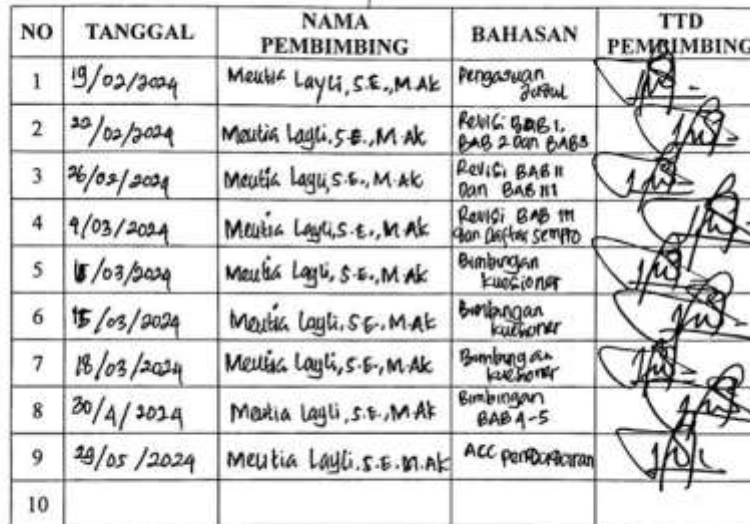 NO TANGGAL NAMA PEMBIMBING BAHASAN TTD PEMBIMBING
1 19/02/2024 Meutia Layli, S.E., M.Ak Pengajuan Judul
2 22/02/2024 Meutia Layli, S.E., M.Ak Revisi BAB 1, BAB 2 Dan BAB3
3 26/02/2024 Meutia Layli, S.E., M.Ak Revisi BAB II Dan BAB III
4 9/03/2024 Meutia Layli, S.E., M.Ak Revisi BAB III dan Daftar sempro
5 /03/2024 Meutia Layli, S.E., M.Ak Bimbingan kuesioner
6 15/03/2024 Meutia Layli, S.E., M.Ak Bimbingan kuesioner
7 18/03/2024 Meutia Layli, S.E., M.Ak Bimbingan kuesioner
8 30/4/2024 Meutia Layli, S.E., M.Ak Bimbingan BAB 4-5
9 29/05/2024 Meutia Layli. S.E. M.Ak ACC
10